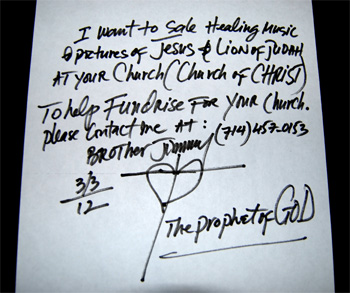 I Want to Sale Healing Music
& pictures of Jesus & Lion of JUDAH
AT your Church (Church of CHRIST)
To help Fundrise For your Church.
please Contact me AT:
BROTHER Jimmy (714) 457-0153
3/3
12
The prophet of GOD